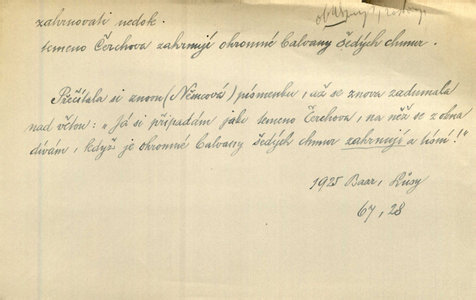 zahrnovati nedok.
temeno Čerchova zahrnují ohromné balvany šedých chmur.
Přečítala si znovu (Němcová) písmenku, až se znova zadumala
nad větou: „Já si připadám jako temeno Čerchova, na něž se z okna
dívám, když je ohromné balvany šedých chmur zahrnují a tísní!"
1925 Baar, Lůsy
67, 28